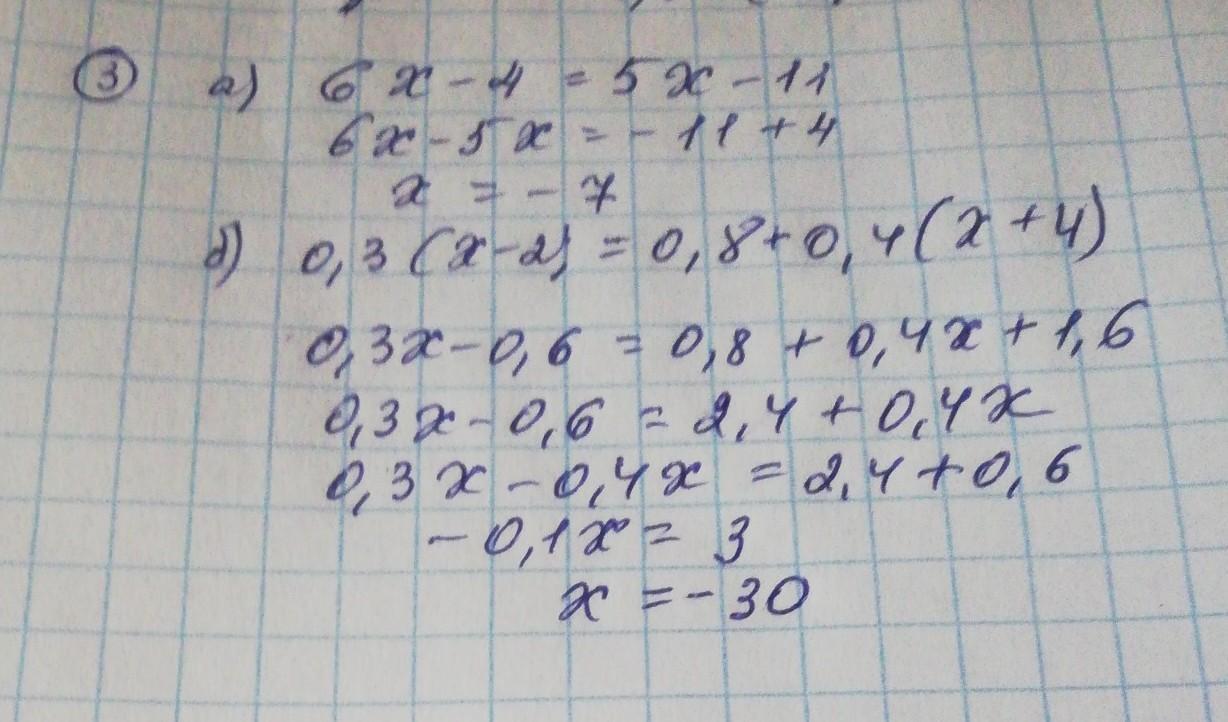 3 а) 6x - 4 = 5x - 11
6x - 5x = - 11 + 4
x = - 7
б) 0,3(x - 2) = 0,8 + 0,4(x + 4)
0,3x - 0,6 = 0,8 + 0,4x + 1,6
0,3x - 0,6 = 2,4 + 0,4x
0,3x - 0,4x = 2,4 + 0,6
- 0,1x = 3
x = - 30